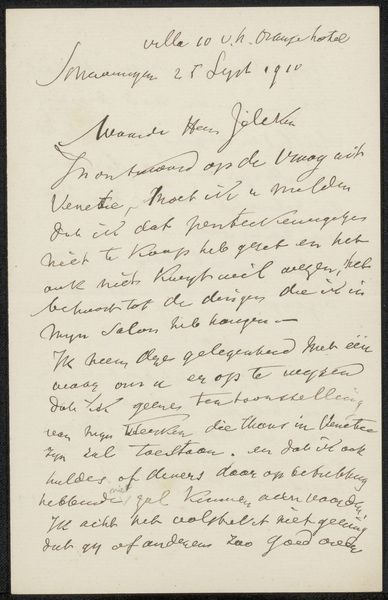 villa 10 v.h. Oranjehotel
Scheveningen 25 Sept 1910
Waarde Heer Zilcken
In antwoord op de vraag uit
Venetie, moet ik u melden
dat ik dat
niet te koop heb gezet en het
ook niet kwijt wil wezen, het
behoort tot de dingen die ik in
mijn Salon heb hangen —
Ik neem deze gelegenheid met één
waar om u er op te wijzen
dat ik geene tentoonstelling
van mijn werken die thans in Venetie
zijn zal toestaan. en dat ik ook
huldes of diners daar op betrekking
hebbende niet zal kunnen aanvaarden
Ik acht het volstrekt niet
dat gij of anderen zoo goed over